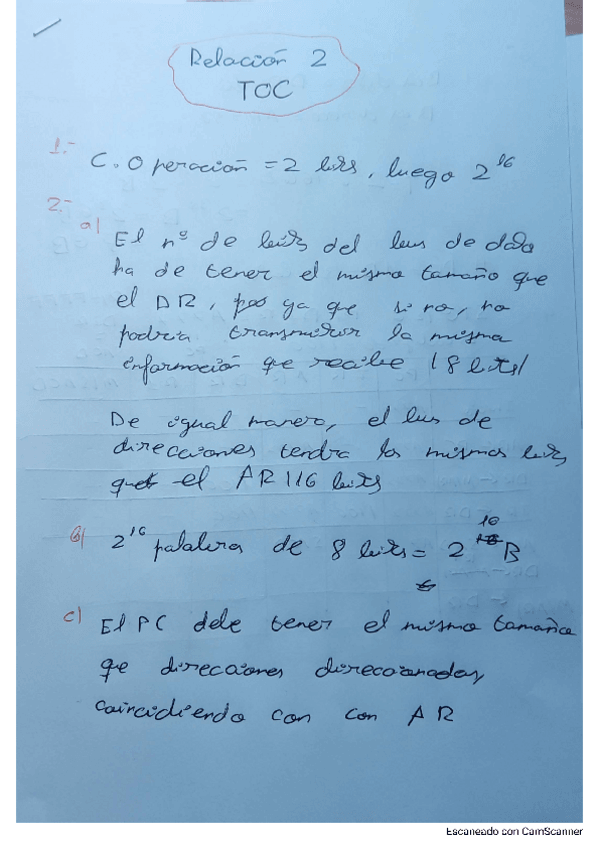 Relación 2
TOC
1.-
C. Operación = 2 bits, luego 2^16
2.-
a) El nº de bits del bus de dato
ha de tener el mismo tamaño que
el DR, pos ya que si no, no
podria transmitir la misma
información que recibe (8 bits)
De igual manera, el bus de
direcciones tendra los mismos bits
que el AR (16 bits
b) 2^16 palabra de 8 bits = 2^16 B
c) El PC debe tener el mismo tamaño
que direcciones direccionadas,
coincidiendo con con AR
Escaneado con CamScanner